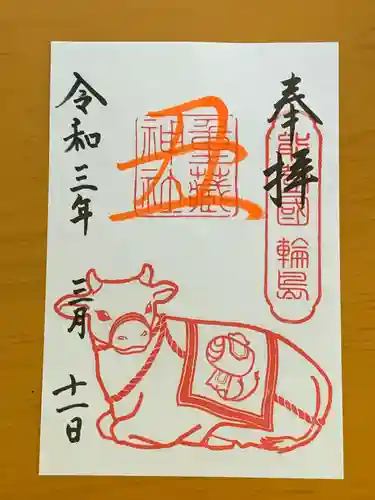 奉拝
能登國輪島
丑
重蔵神社
令和三年
三月
十一日